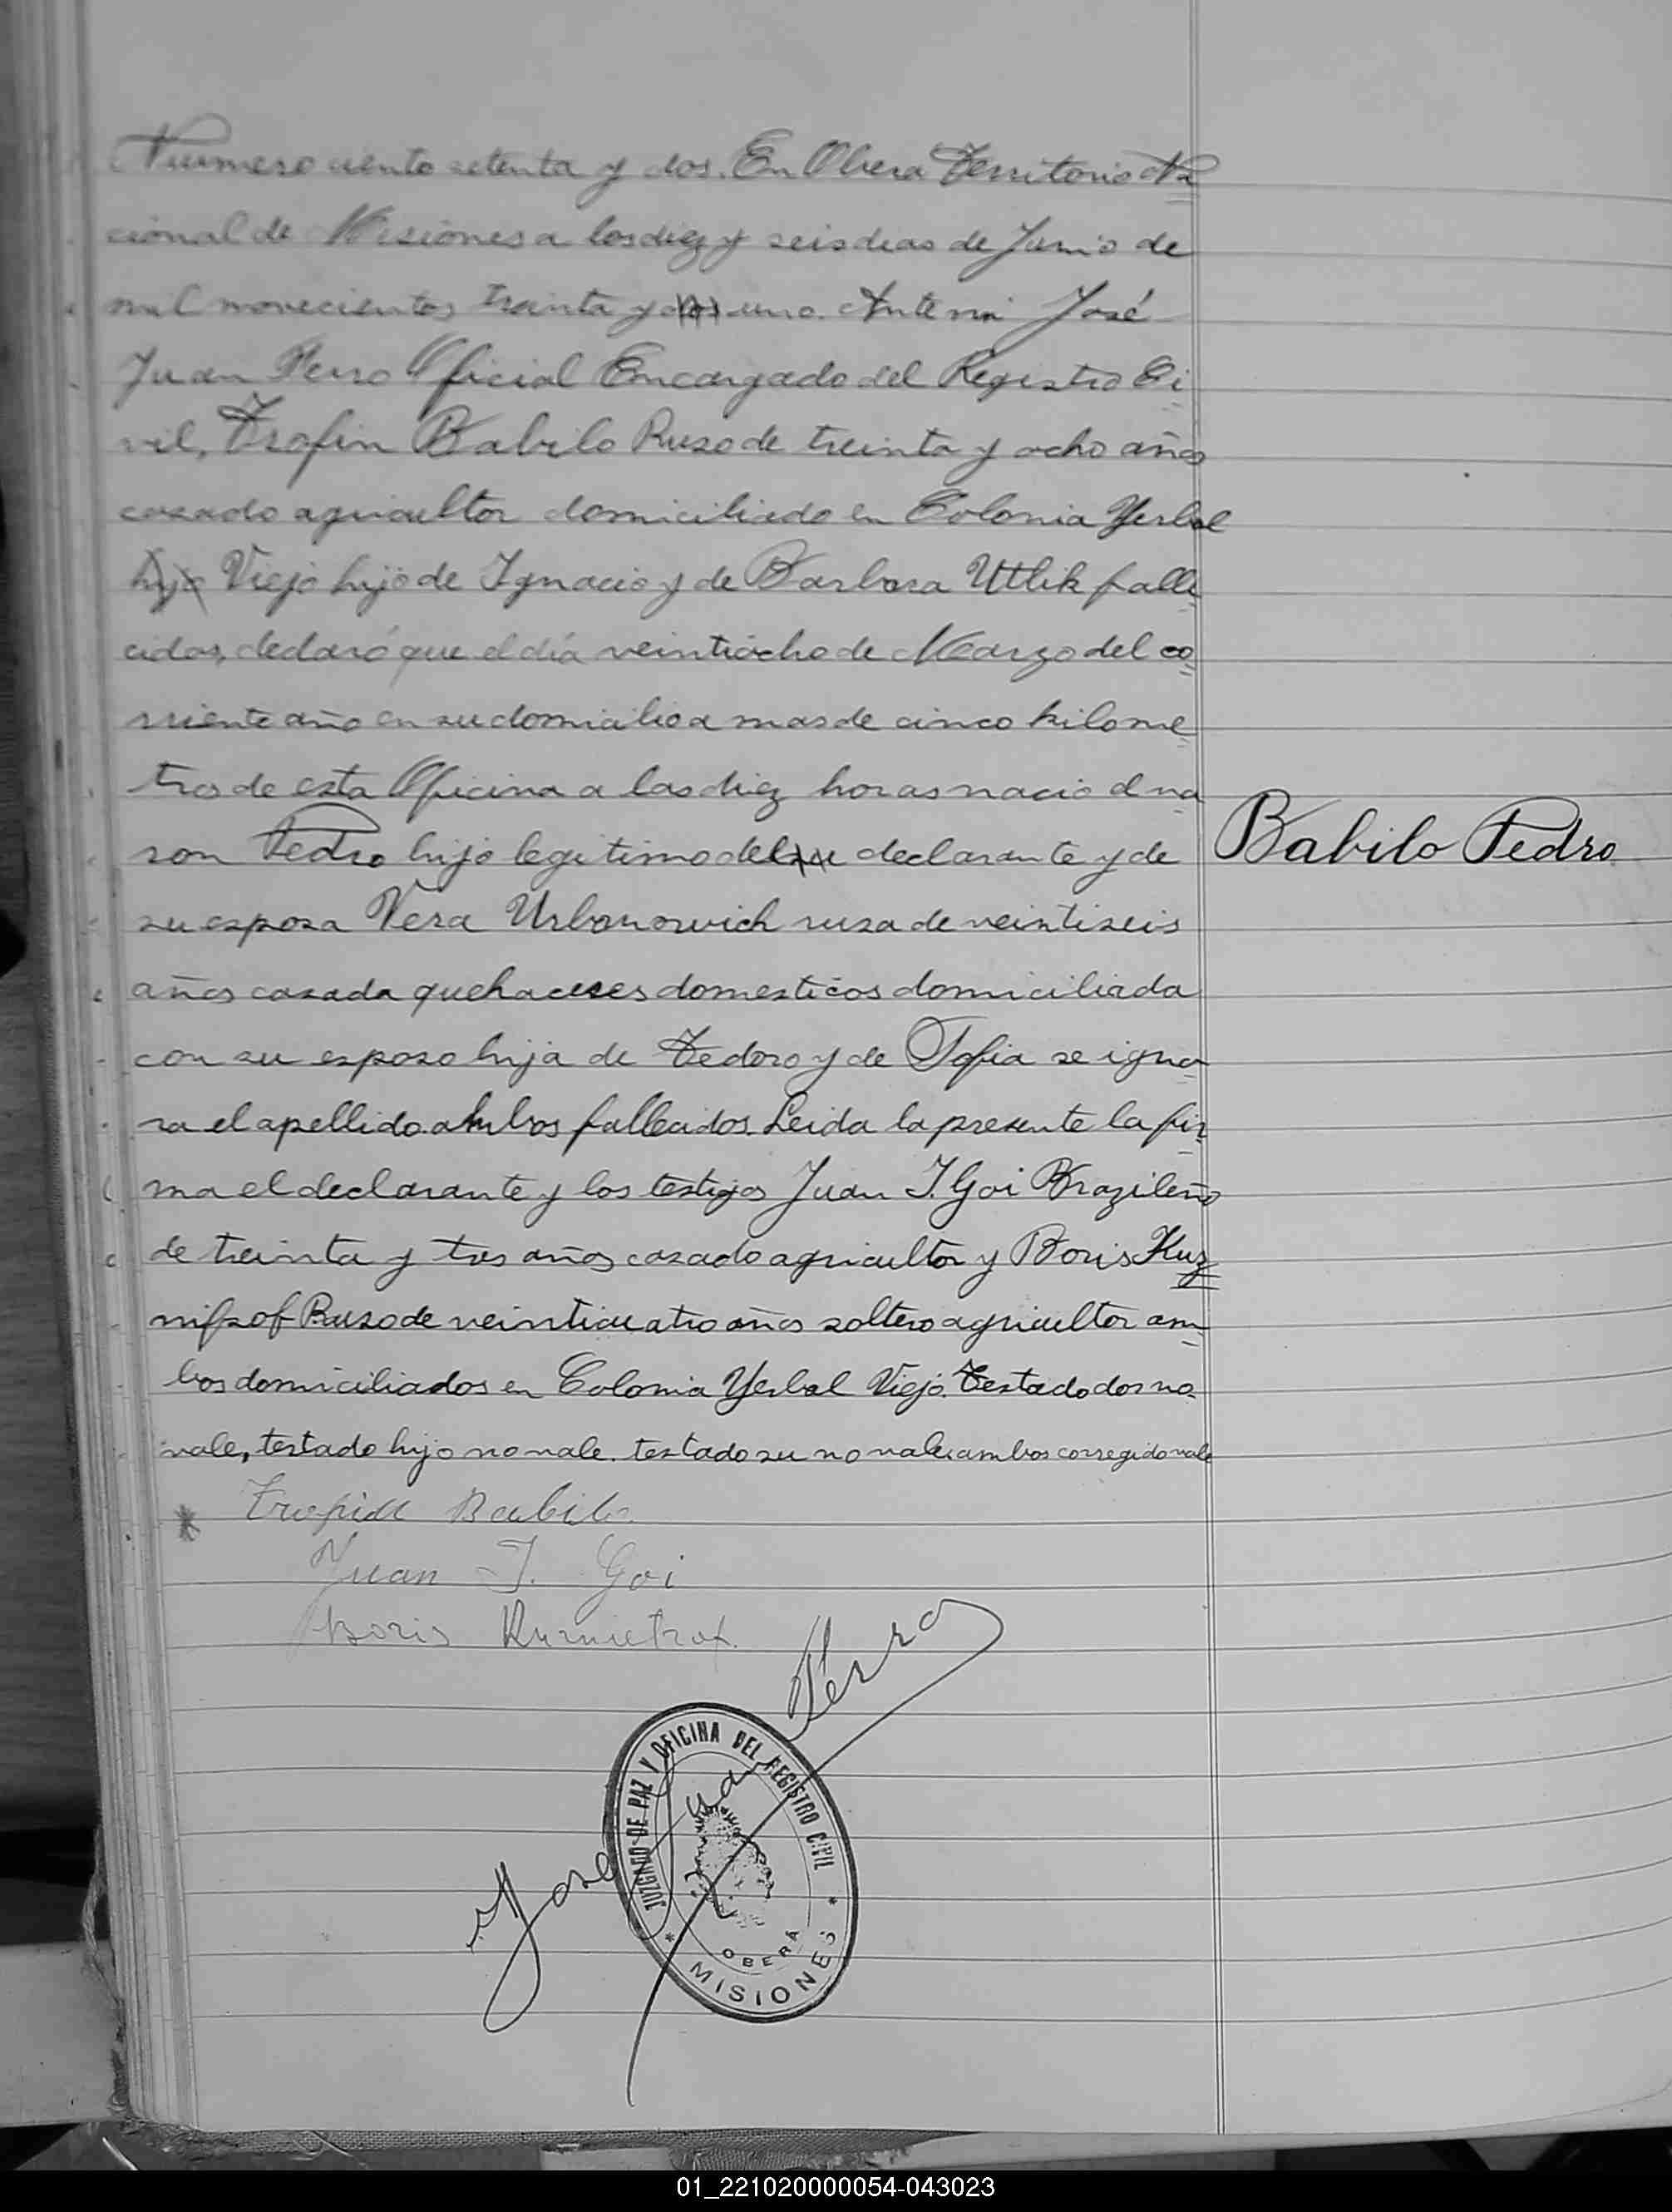 Numero ciento setenta y dos. En Obera Territorio Na
cional de Misiones a los diez y seis dias de Junio de
mil novecientos treinta y dos uno. Ante mi José
Juan Perro Oficial Encargado del Registro Ci
vil, Trofin Babilo Ruso de treinta y ocho años
casado agricultor domiciliado en Colonia Yerbal
hijo Viejo hijo de Ignacio y de Barbara Utlik falle
cidos, declaró que el día veintiocho de Marzo del co
rriente año en su domicilio a mas de cinco kilome
tros de esta Oficina a las diez horas nacio el va
ron Pedro hijo legitimo del su declarante y de
su esposa Vera Urbonowich rusa de veintiseis
años casada quehaceres domesticos domiciliada
con su esposo hija de Tedoro y de Sofia se igno
ra el apellido ambos fallecidos. Leida la presente la fir
ma el declarante y los testigos Juan J. Goi Brazileño
de treinta y tres años casado agricultor y Boris Kuz
Ruso de veinticuatro años soltero agricultor am
bos domiciliados en Colonia Yerbal Viejo. Testado dos no
vale, testado hijo no vale. testado su no vale. ambos corregido vale
Babilo Pedro
Babilo
Juan J. Goi
Boris
José Juan Perro
JUZGADO DE PAZ Y OFICINA DEL REGISTRO CIVIL
OBERÁ
* MISIONES *
01_221020000054-043023